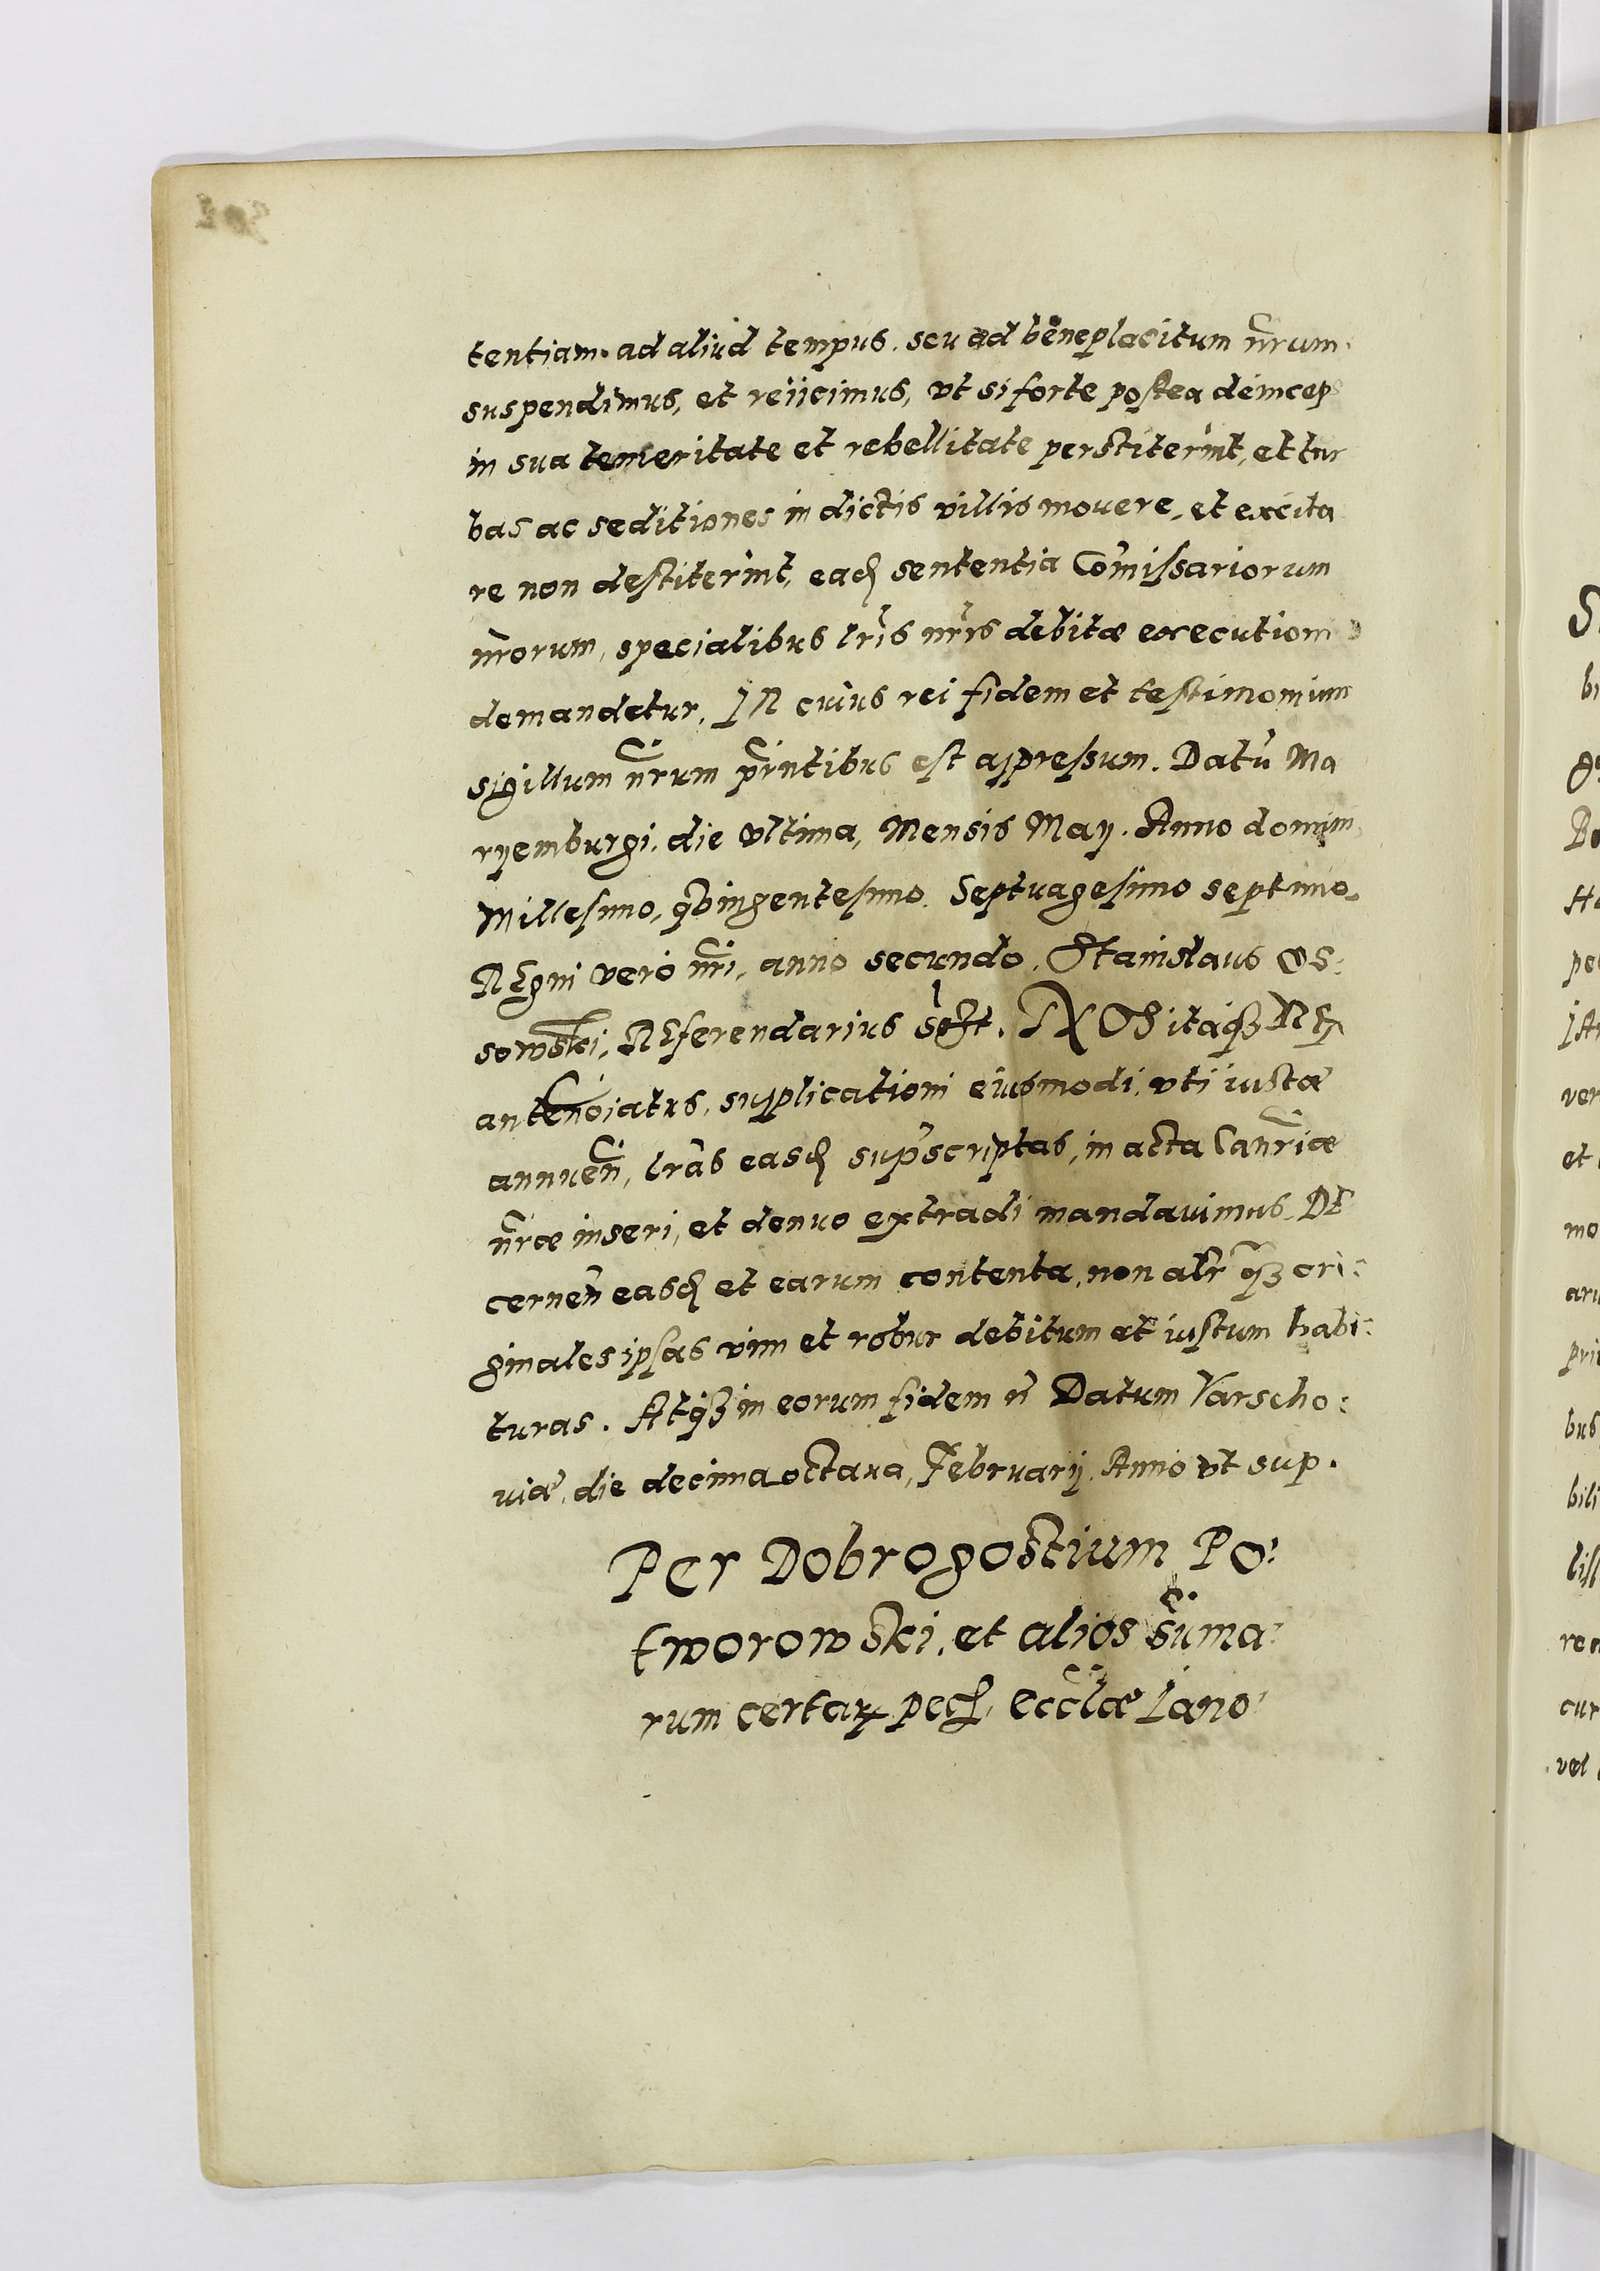 tentiam ad aliud tempus. seu ad beneplacitum nrum
suspendimus, et reiicimus, vt si forte postea deincep
in sua temeritate et rebellitate perstiterint, et tur
bas ac seditiones in dictis villis mouere, et excita
re non destiterint, ead sententia Comissariorum
nrorum, specialibus lris nris debitæ executioni
demandetur. IN cuius rei fidem et testimonium
sigillum nrum pntibus est appressum. Datu Ma
ryemburgi, die vltima, Mensis Maij. Anno domini
Millesimo, qvingentesimo. Septuagesimo septimo.
REgni vero nri, anno secundo. Stanislaus Os:
sowski, REferendarius sspt. NOS itaq REx
antenoiatus, supplicationi eiusmodi, vti iustæ
annuen, lras easd supscriptas, in acta Canriæ
nræ inseri, et denuo extradi mandauimus. DE
cernen easd et earum contenta, non alr qz ori:
ginales ipsas vim et robur debitum et iustum habi:
turas. Atqz in eorum fidem n Datum Varscho:
uiæ, die decima octaua, Februarij, Anno vt sup.
Per Dobrogostium Po:
tworowski, et alios sūma:
rum certar pec, Eccłæ Lano: